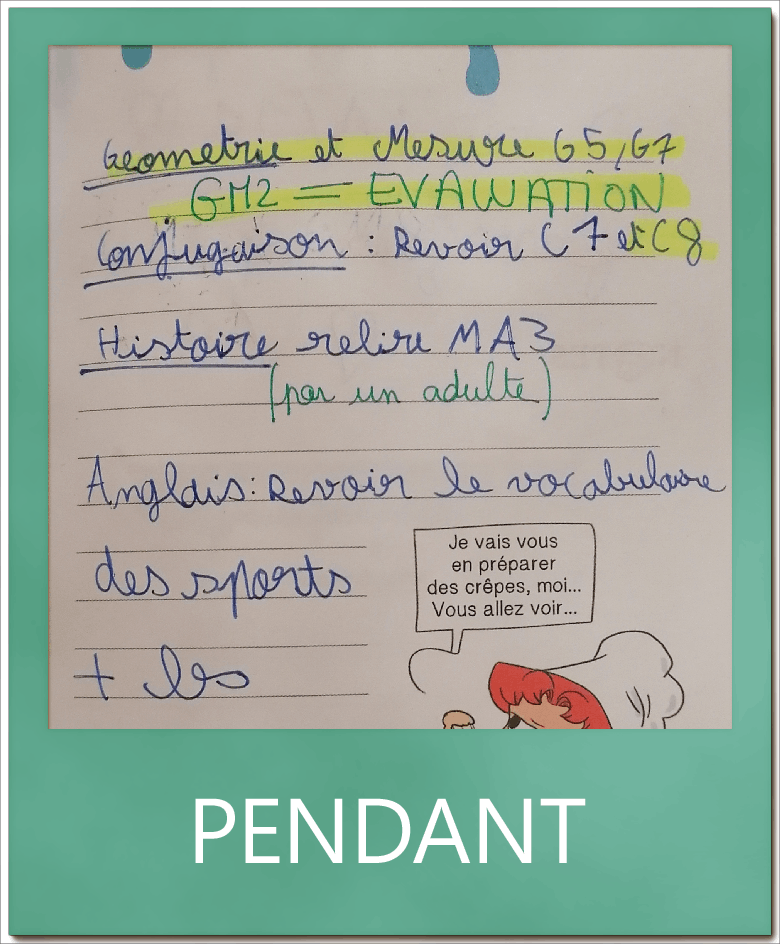 Geometrie et Mesure G5, G7
GM2 = EVALUATION
Conjugaison : Revoir C7 et C8
Histoire relire MA3
(par un adulte)
Anglais: Revoir le vocabulaire
des sports
+ les
Je vais vous
en préparer
des crêpes, moi...
Vous allez voir...
PENDANT